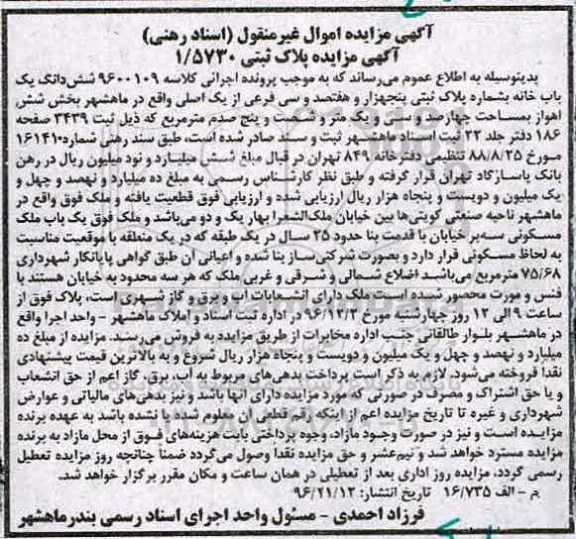 آگهی مزایده اموال غیرمنقول (اسناد رهنی)
آگهی مزایده پلاک ثبتی ۱/۵۷۳۰
بدینوسیله به اطلاع عموم می‌رساند که به موجب پرونده اجرائی کلاسه ۹۶۰۰۱۰۹ شش‌دانگ یک
باب خانه بشماره پلاک ثبتی پنجهزار و هفتصد و سی فرعی از یک اصلی واقع در ماهشهر بخش شش
اهواز بمساحت چهارصد و سی و یک متر و شصت و پنج صدم مترمربع که ذیل ثبت ۳۴۳۹ صفحه
۱۸۶ دفتر جلد ۲۲ ثبت اسناد ماهشهر ثبت و سند صادر شده است، طبق سند رهنی شماره ۱۶۱۴۱۰
مورخ ۸۸/۸/۲۵ تنظیمی دفترخانه ۸۴۹ تهران در قبال مبلغ شش میلیارد و نود میلیون ریال در رهن
بانک پاسارگاد تهران قرار گرفته و طبق نظر کارشناس رسمی به مبلغ ده میلیارد و نهصد و چهل و
یک میلیون و دویست و پنجاه هزار ریال ارزیابی شده و ارزیابی فوق قطعیت یافته و ملک فوق واقع در
ماهشهر ناحیه صنعتی کویتی‌ها بین خیابان ملک‌الشعرا بهار یک و دو می‌باشد و ملک فوق یک باب ملک
مسکونی سه‌بر خیابان با قدمت بنا حدود ۲۵ سال در یک طبقه که در یک منطقه با موقعیت مناسبت
به لحاظ مسکونی قرار دارد و بصورت شرکتی‌ساز بنا شده و اعیانی آن طبق گواهی پایانکار شهرداری
۷۵/۶۸ مترمربع می‌باشد اضلاع شمالی و شرقی و غربی ملک که هر سه محدود به خیابان هستند با
فنس و مورت محصور شده است ملک دارای انشعابات آب و برق و گاز شهری است، پلاک فوق از
ساعت ۹ الی ۱۲ روز چهارشنبه مورخ ۹۶/۱۲/۲ در اداره ثبت اسناد و املاک ماهشهر - واحد اجرا واقع
در ماهشهر بلوار طالقانی جنب اداره مخابرات از طریق مزایده به فروش می‌رسند. مزایده از مبلغ ده
میلیارد و نهصد و چهل و یک میلیون و دویست و پنجاه هزار ریال شروع و به بالاترین قیمت پیشنهادی
نقدا فروخته می‌شود. لازم به ذکر است پرداخت بدهی‌های مربوط به آب، برق، گاز اعم از حق انشعاب
و یا حق اشتراک و مصرف در صورتی که مورد مزایده دارای آنها باشد و نیز بدهی‌های مالیاتی و عوارض
شهرداری و غیره تا تاریخ مزایده اعم از اینکه رقم قطعی آن معلوم شده یا نشده باشد به عهده برنده
مزایده است و نیز در صورت وجود مازاد، وجوه پرداختی بابت هزینه‌های فوق از محل مازاد به برنده
مزایده مسترد خواهد شد و نیم‌عشر و حق مزایده نقدا وصول می‌گردد ضمناً چنانچه روز مزایده تعطیل
رسمی گردد، مزایده روز اداری بعد از تعطیلی در همان ساعت و مکان مقرر برگزار خواهد شد.
م - الف ۱۶/۷۳۵ تاریخ انتشار: ۹۶/۲۱/۱۲
فرزاد احمدی - مسئول واحد اجرای اسناد رسمی بندرماهشهر